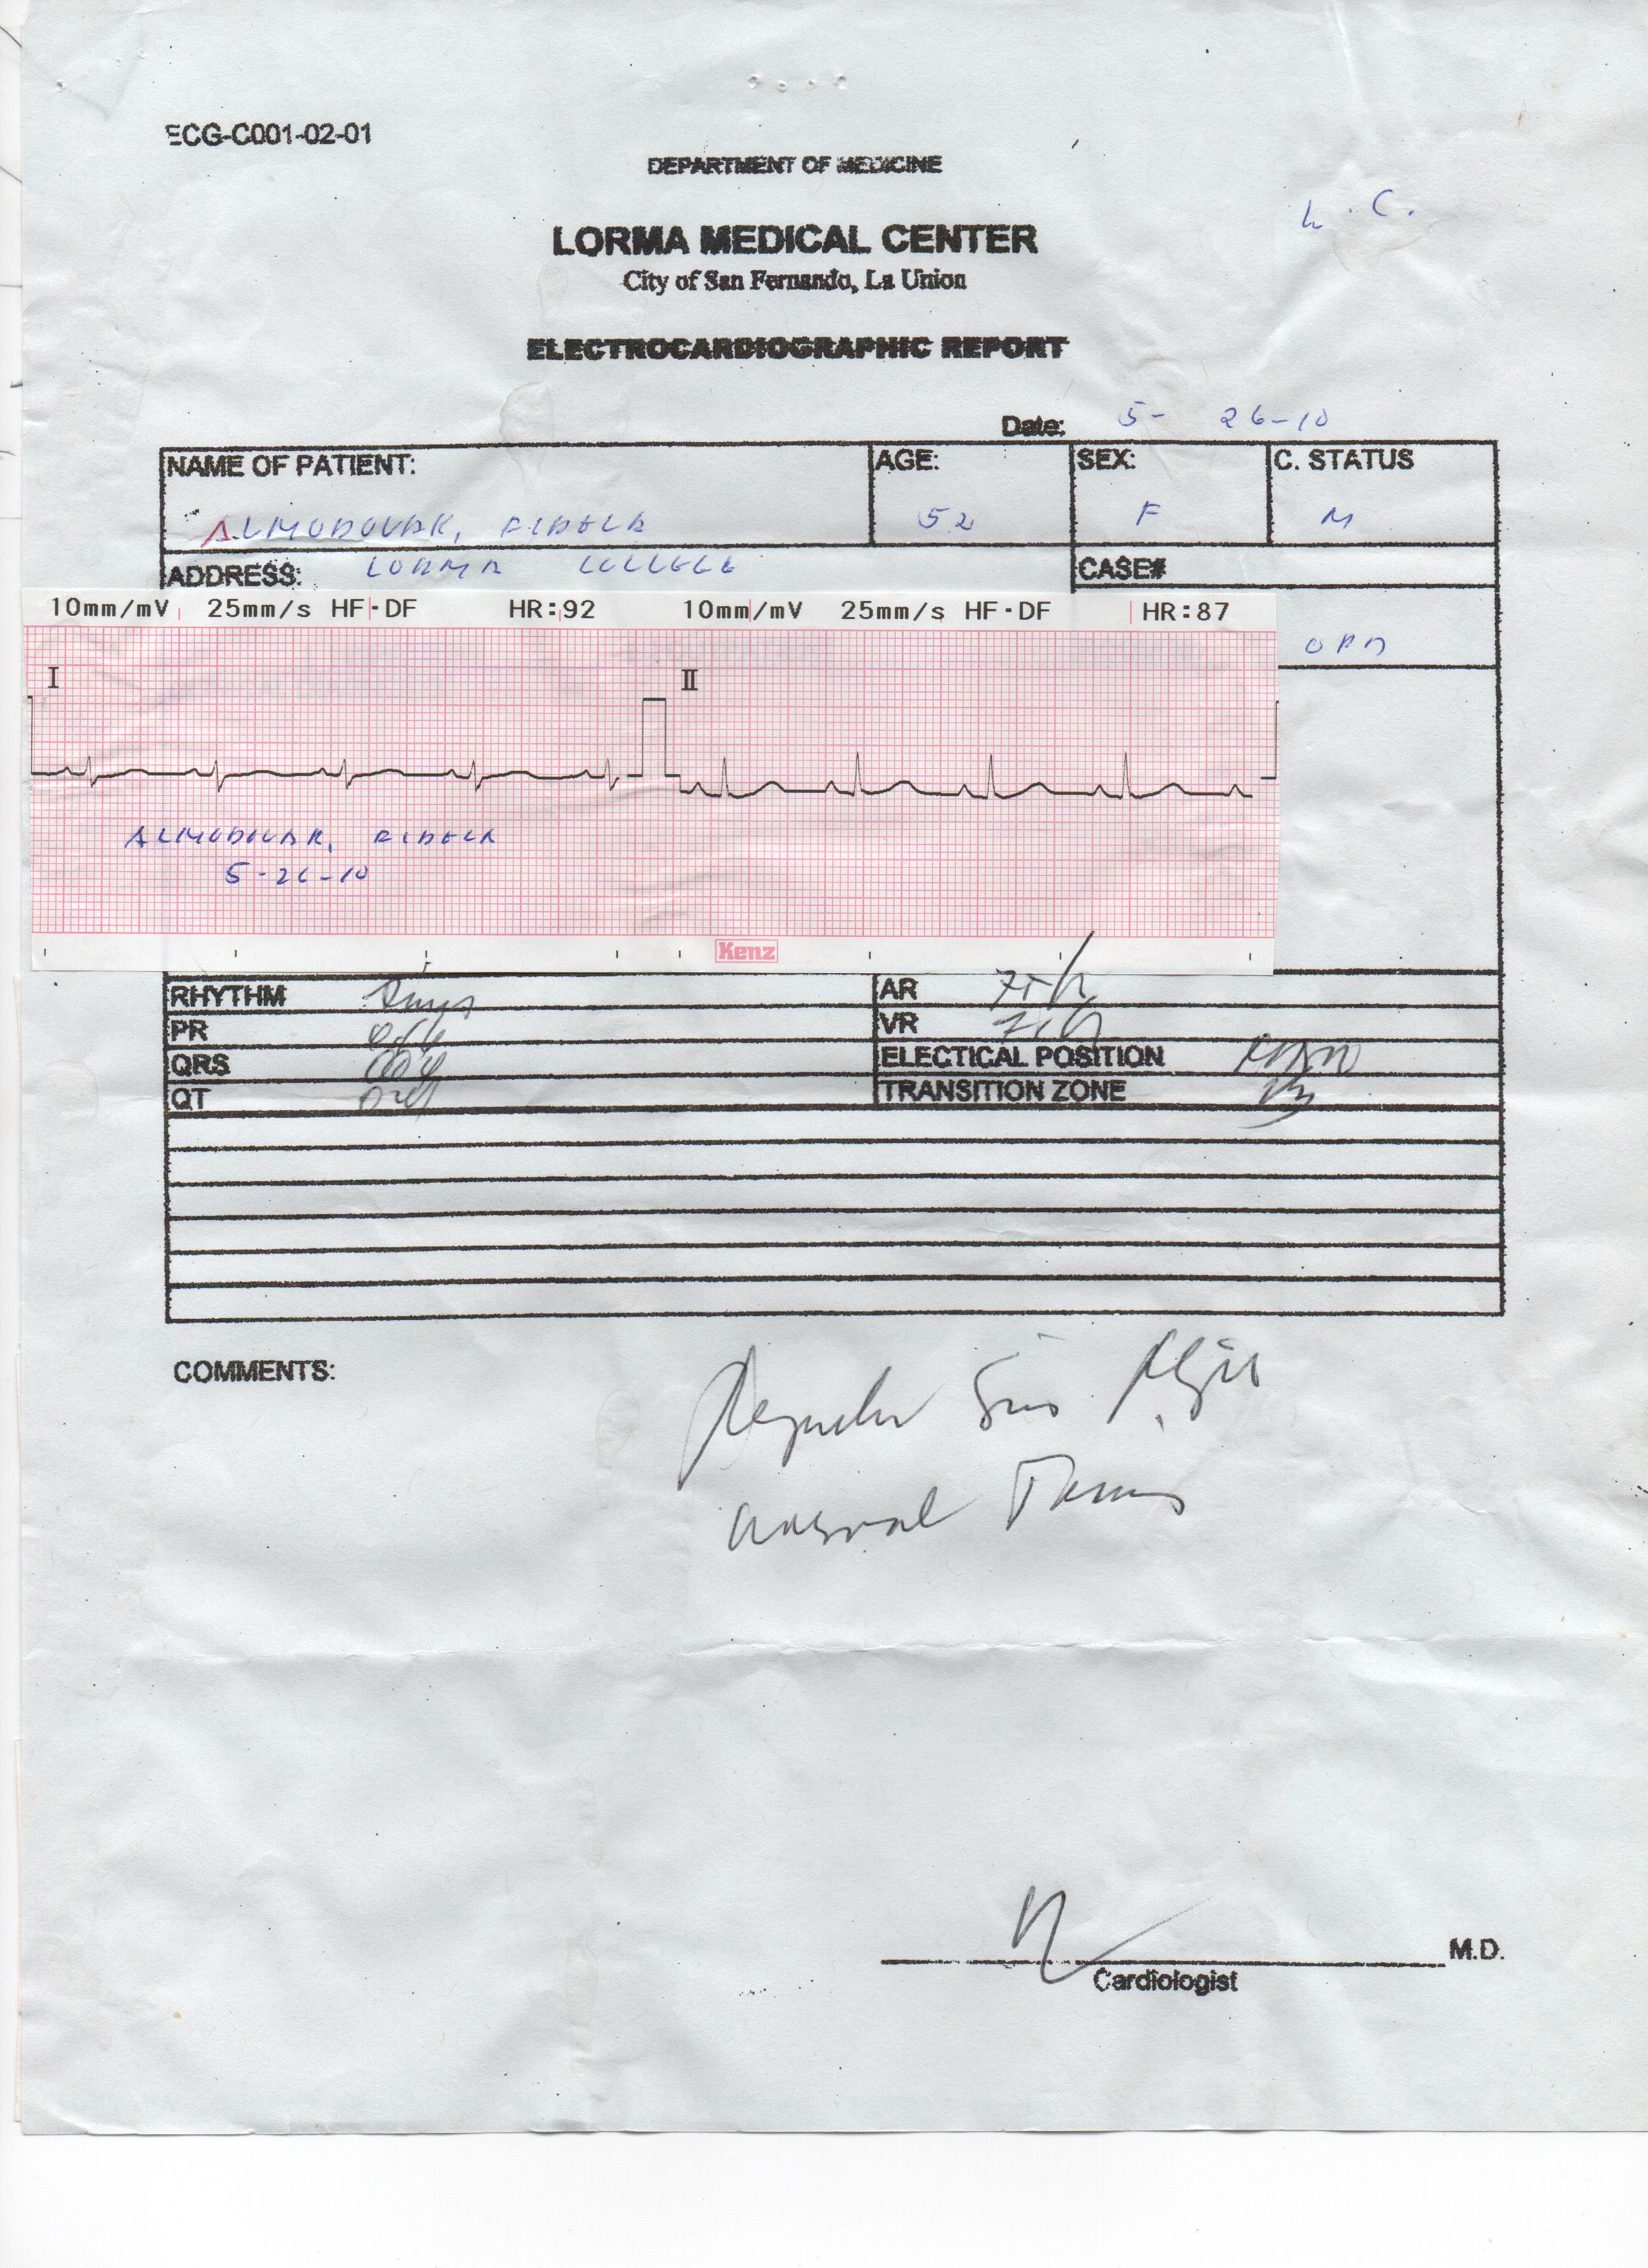 ECG-C001-02-01
DEPARTMENT OF MEDICINE
L.C.
LORMA MEDICAL CENTER
City of San Fernando, La Union
ELECTROCARDIOGRAPHIC REPORT
Date: 5-26-10
NAME OF PATIENT: AGE: SEX: C. STATUS
ALMODOVAR, FIDELA 52 F M
ADDRESS: LORMA COLLEGE CASE#
10mm/mV 25mm/s HF-DF HR:92 10mm/mV 25mm/s HF-DF HR:87
OPD
I II
ALMODOVAR, FIDELA
5-26-10
Kenz
RHYTHM Sinus AR
PR VR
QRS ELECTICAL POSITION
QT TRANSITION ZONE V3
COMMENTS:
Regular Sinus
M.D.
Cardiologist